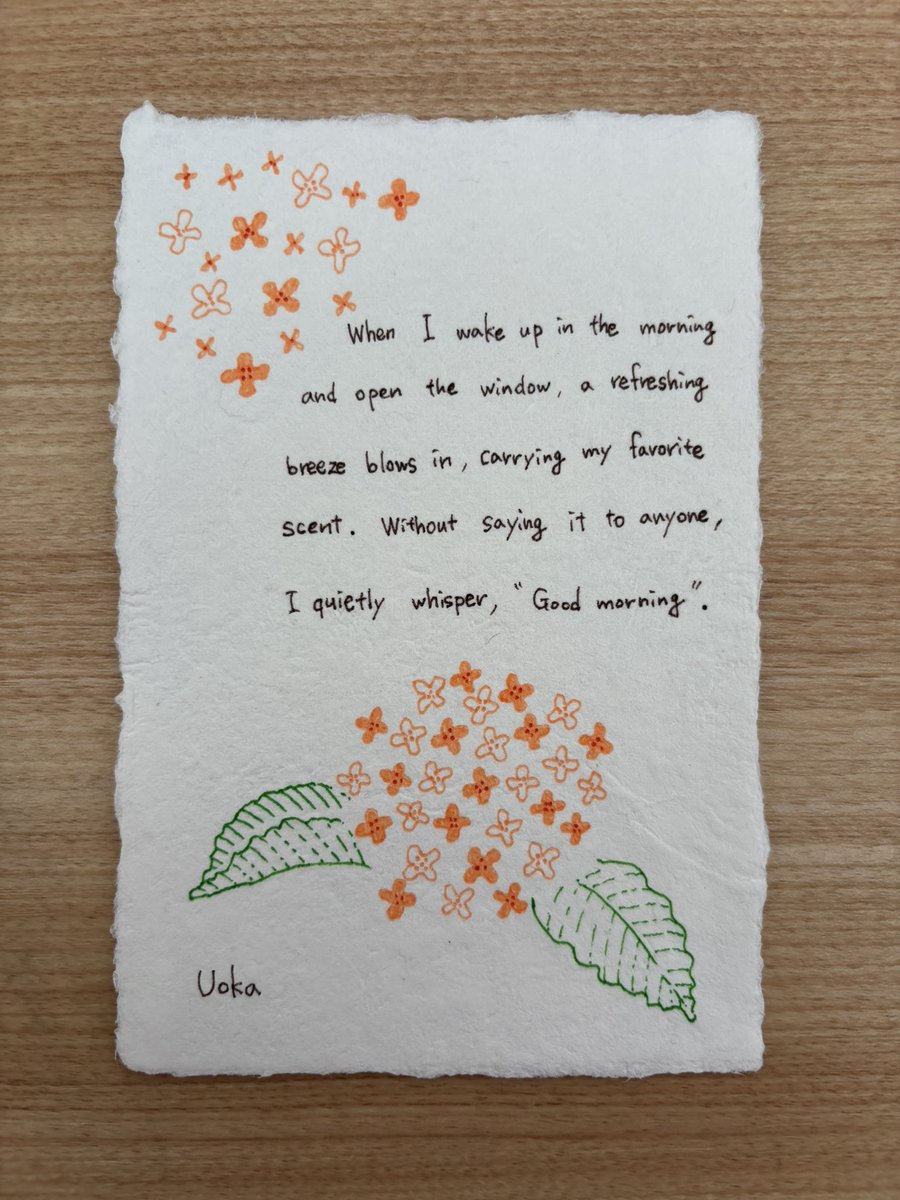 When I wake up in the morning
and open the window, a refreshing
breeze blows in, carrying my favorite
scent. Without saying it to anyone,
I quietly whisper, "Good morning".
Uoka